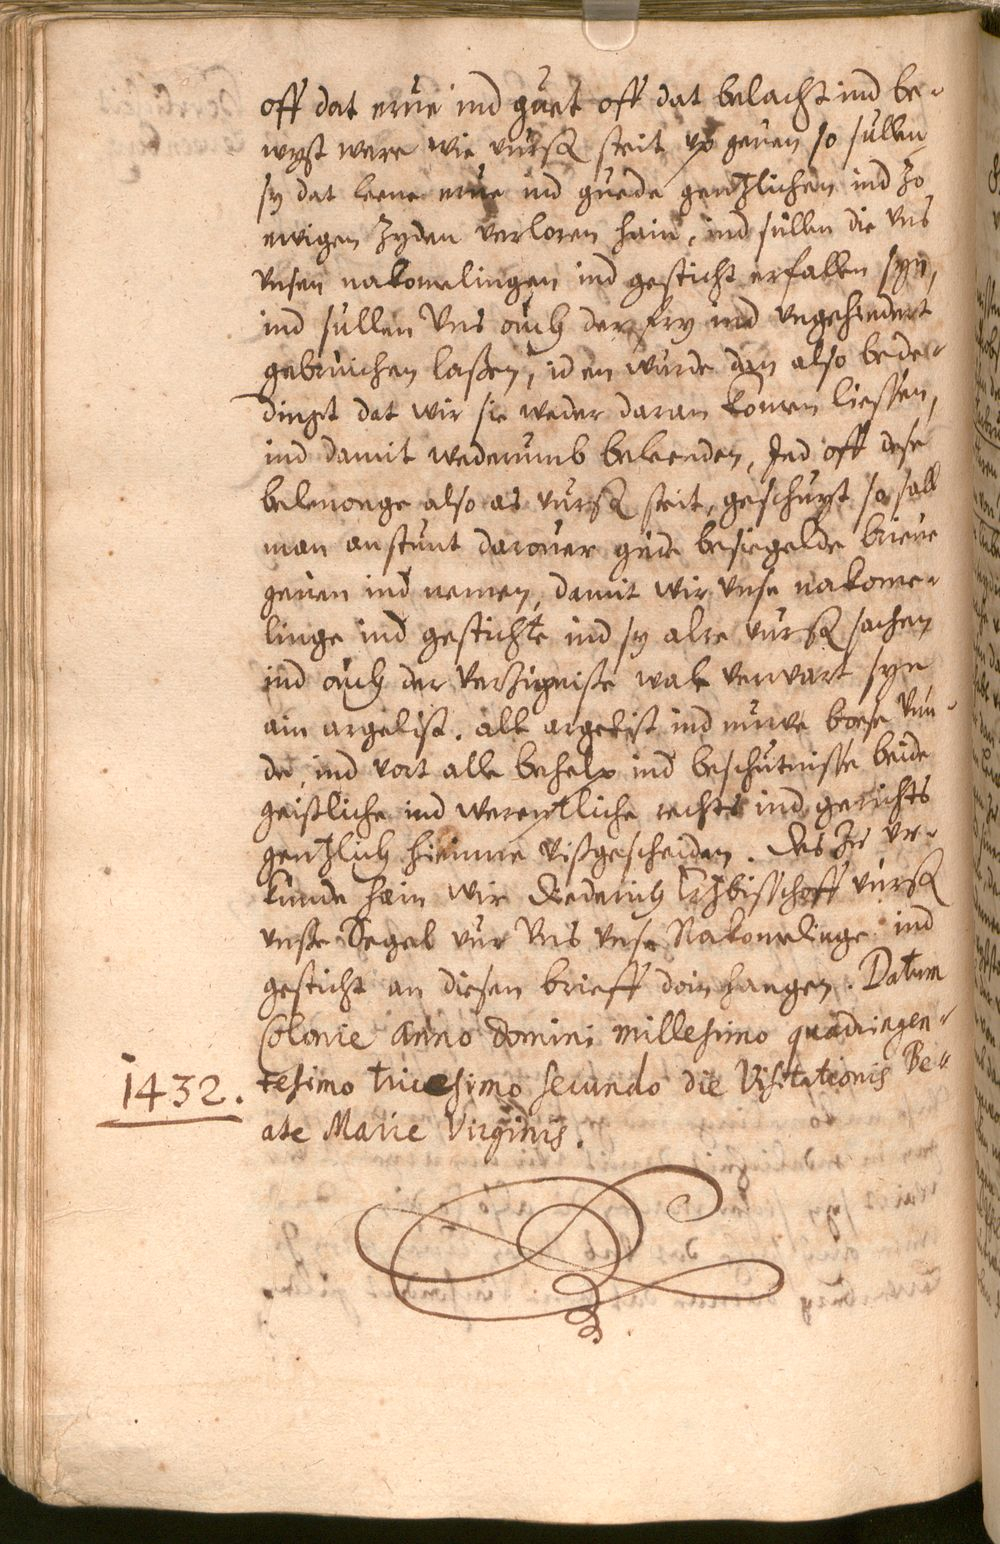 off dat erue ind guet off dat belacht ind be-
wyst were wie vursß steit vp geuen so sullen
sy dat leene erue ind guede gentzlichen ind zo
ewigen zyden verloren hain, ind sullen die vns
vnsen nakomelingen ind gesticht erfallen syn,
ind sullen vns ouch der fry ind vngehindert
gebruichen laßen, id en wurde dan also bede-
dingt dat wir sie weder daran komen liessen,
ind damit wederumb beleenden, Ind off dese
belenonge also as vursß steit, geschuyt so sall
man anstunt darouer guede besiegelde brieue
geuen ind nemen, damit wir vnse nakome-
linge ind gestichte ind sy alre vursß sachen
ind ouch der vertzigniße wale verwart syn
ain argelist. all argelist ind nuwe boese vun-
de, ind vort alle behelp ind beschutnisse beide
geistliche ind werentliche rechts ind gerichts
gentzlich hieinne vißgescheiden. Des zo vr-
kunde hain wir Diederich Ertzbisschoff vursß
vnße Segel vur vns vnse Nakomelinge ind
gesticht an diesen brieff doin hangen. Datum
Colonie Anno domini millesimo quadringen-
1432. tesimo tricesimo secundo die Visitationis Be-
ate Marie Virginis.